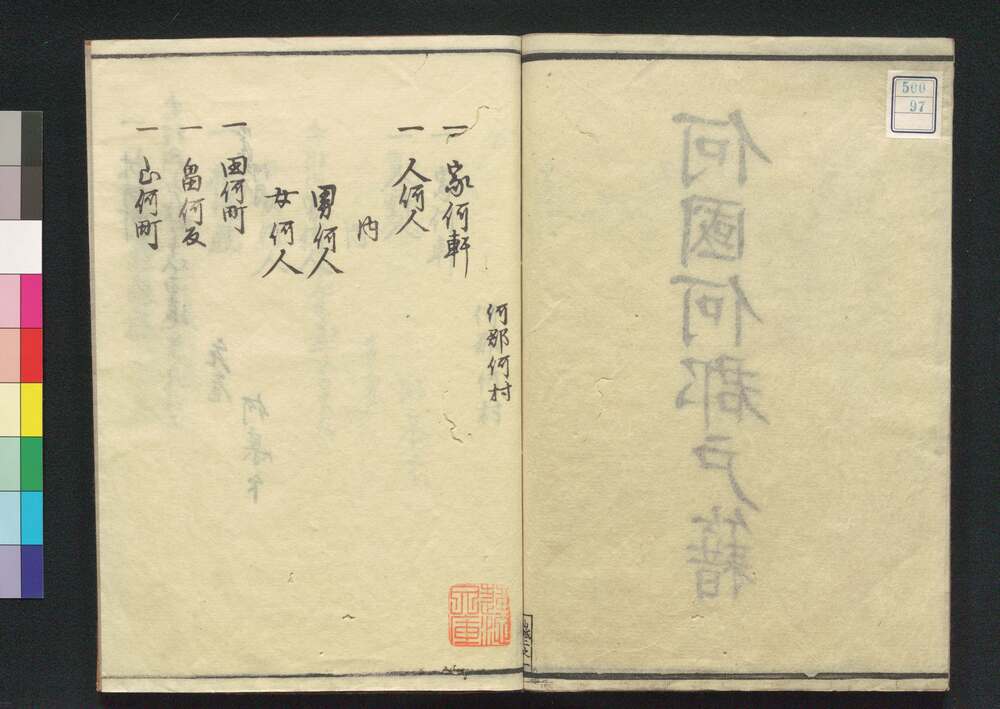 500
97
何國何郡戸籍
何郡何村
一 家何軒
一 人何人
内
男何人
女何人
一 田何町
一 畠何反
一 山何町